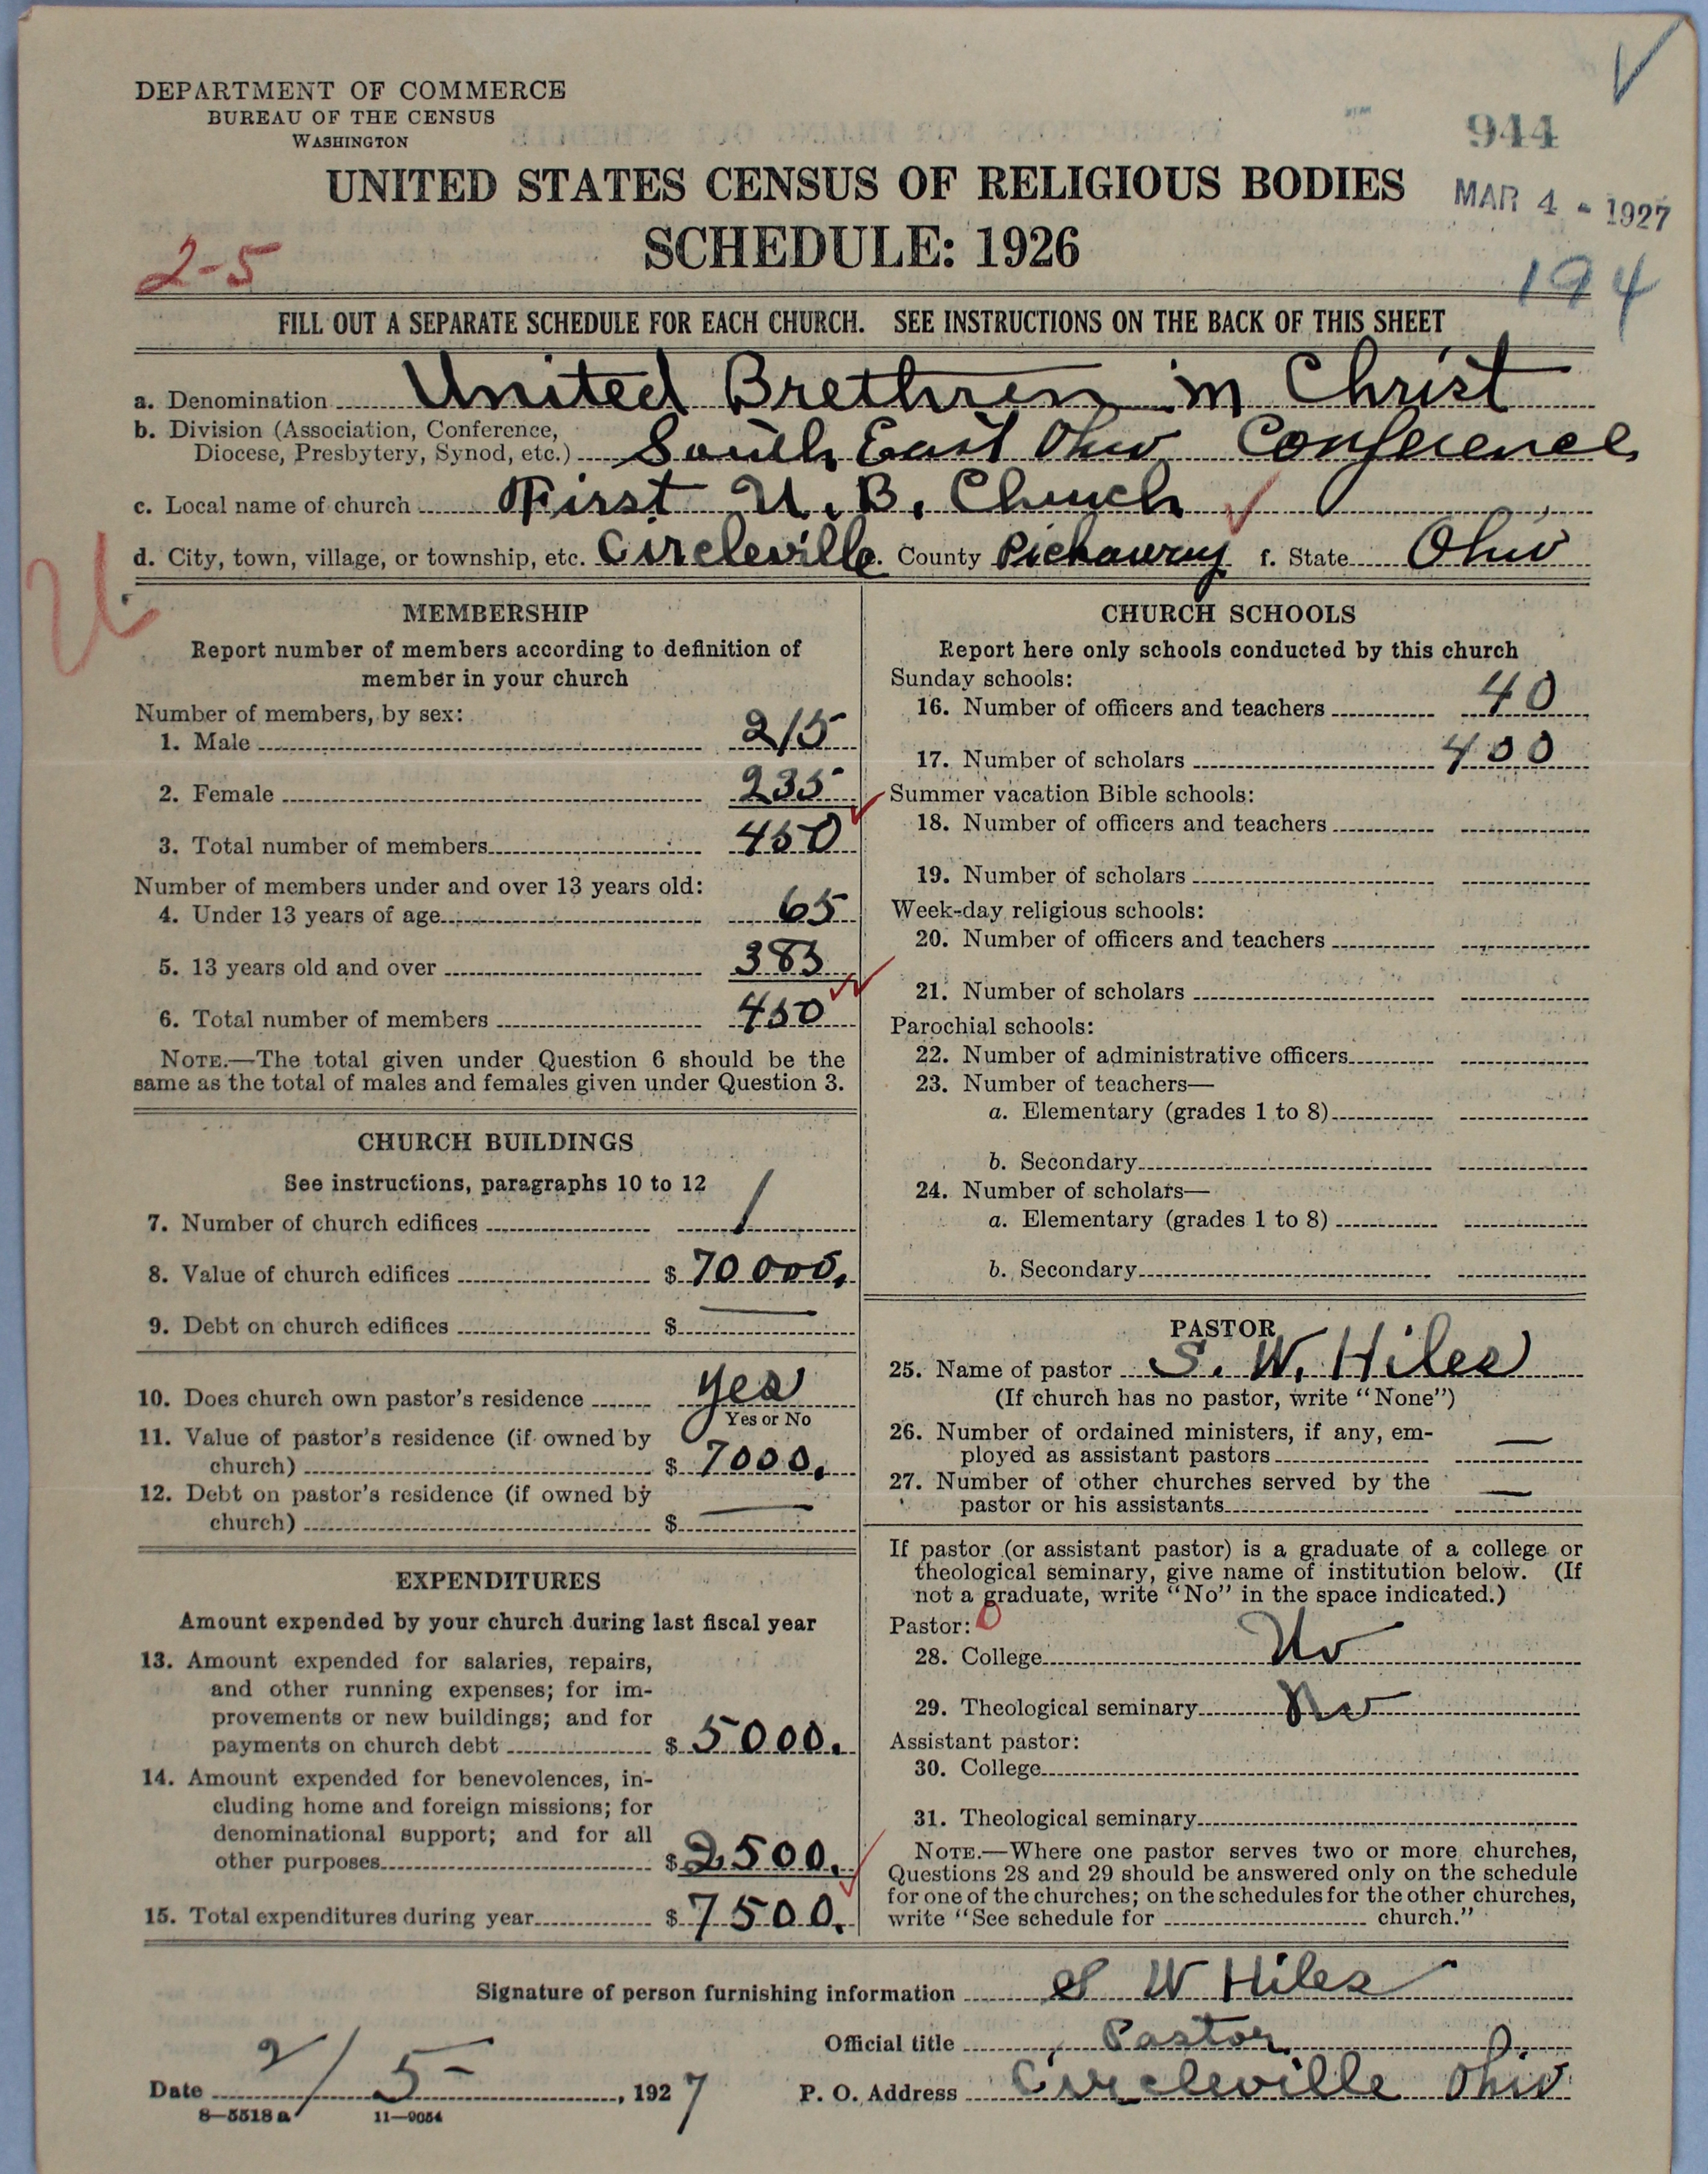 DEPARTMENT OF COMMERCE
BUREAU OF THE CENSUS
WASHINGTON
944
UNITED STATES CENSUS OF RELIGIOUS BODIES
MAR 4 - 1927
SCHEDULE: 1926
2-5
194
FILL OUT A SEPARATE SCHEDULE FOR EACH CHURCH. SEE INSTRUCTIONS ON THE BACK OF THIS SHEET
a. Denomination United Brethren in Christ
b. Division (Association, Conference,
Diocese, Presbytery, Synod, etc.) South East Ohio Conference
c. Local name of church First U. B. Church
d. City, town, village, or township, etc. Circleville. County Pickaway f. State Ohio
MEMBERSHIP
Report number of members according to definition of
member in your church
Number of members, by sex:
1. Male 215
2. Female 235
3. Total number of members 450
Number of members under and over 13 years old:
4. Under 13 years of age 65
5. 13 years old and over 385
6. Total number of members 450
NOTE.—The total given under Question 6 should be the
same as the total of males and females given under Question 3.
CHURCH BUILDINGS
See instructions, paragraphs 10 to 12
7. Number of church edifices 1
8. Value of church edifices $ 70000.
9. Debt on church edifices $ —
10. Does church own pastor's residence yes
Yes or No
11. Value of pastor's residence (if owned by
church) $ 7000.
12. Debt on pastor's residence (if owned by
church) $ —
EXPENDITURES
Amount expended by your church during last fiscal year
13. Amount expended for salaries, repairs,
and other running expenses; for im-
provements or new buildings; and for
payments on church debt $ 5000.
14. Amount expended for benevolences, in-
cluding home and foreign missions; for
denominational support; and for all
other purposes $ 2500.
15. Total expenditures during year $ 7500.
CHURCH SCHOOLS
Report here only schools conducted by this church
Sunday schools:
16. Number of officers and teachers 40
17. Number of scholars 400
Summer vacation Bible schools:
18. Number of officers and teachers
19. Number of scholars
Week-day religious schools:
20. Number of officers and teachers
21. Number of scholars
Parochial schools:
22. Number of administrative officers
23. Number of teachers—
a. Elementary (grades 1 to 8)
b. Secondary
24. Number of scholars—
a. Elementary (grades 1 to 8)
b. Secondary
PASTOR
25. Name of pastor S. W. Hiles
(If church has no pastor, write "None")
26. Number of ordained ministers, if any, em-
ployed as assistant pastors —
27. Number of other churches served by the
pastor or his assistants —
If pastor (or assistant pastor) is a graduate of a college or
theological seminary, give name of institution below. (If
not a graduate, write "No" in the space indicated.)
Pastor: 0
28. College No
29. Theological seminary No
Assistant pastor:
30. College
31. Theological seminary
NOTE.—Where one pastor serves two or more churches,
Questions 28 and 29 should be answered only on the schedule
for one of the churches; on the schedules for the other churches,
write "See schedule for church."
Signature of person furnishing information S W Hiles
Official title Pastor
Date 2/5, 1927 P. O. Address Circleville Ohio
8—5518 a 11—9054